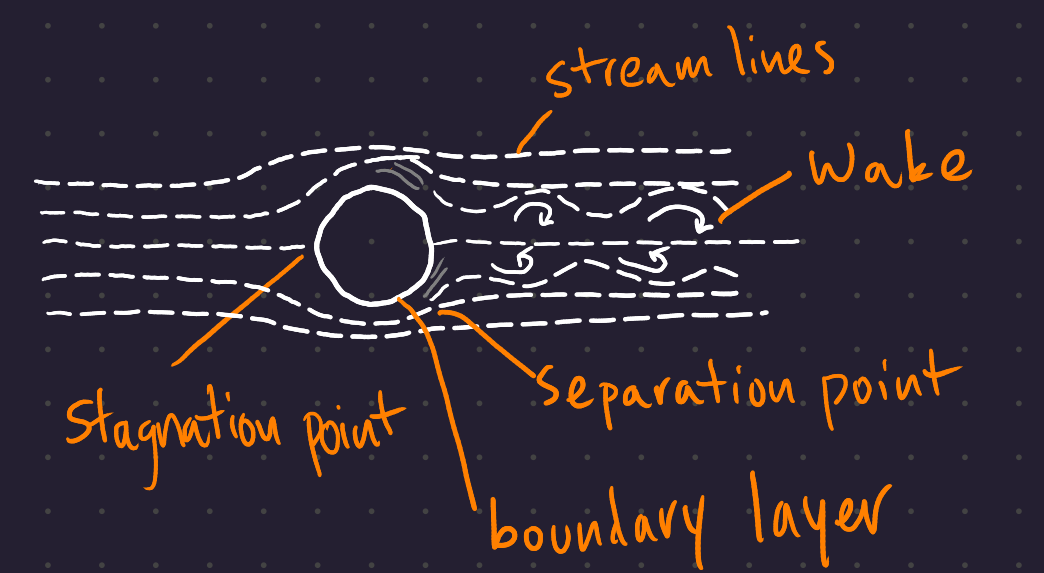 stream lines
Wake
Separation point
Stagnation point
boundary layer